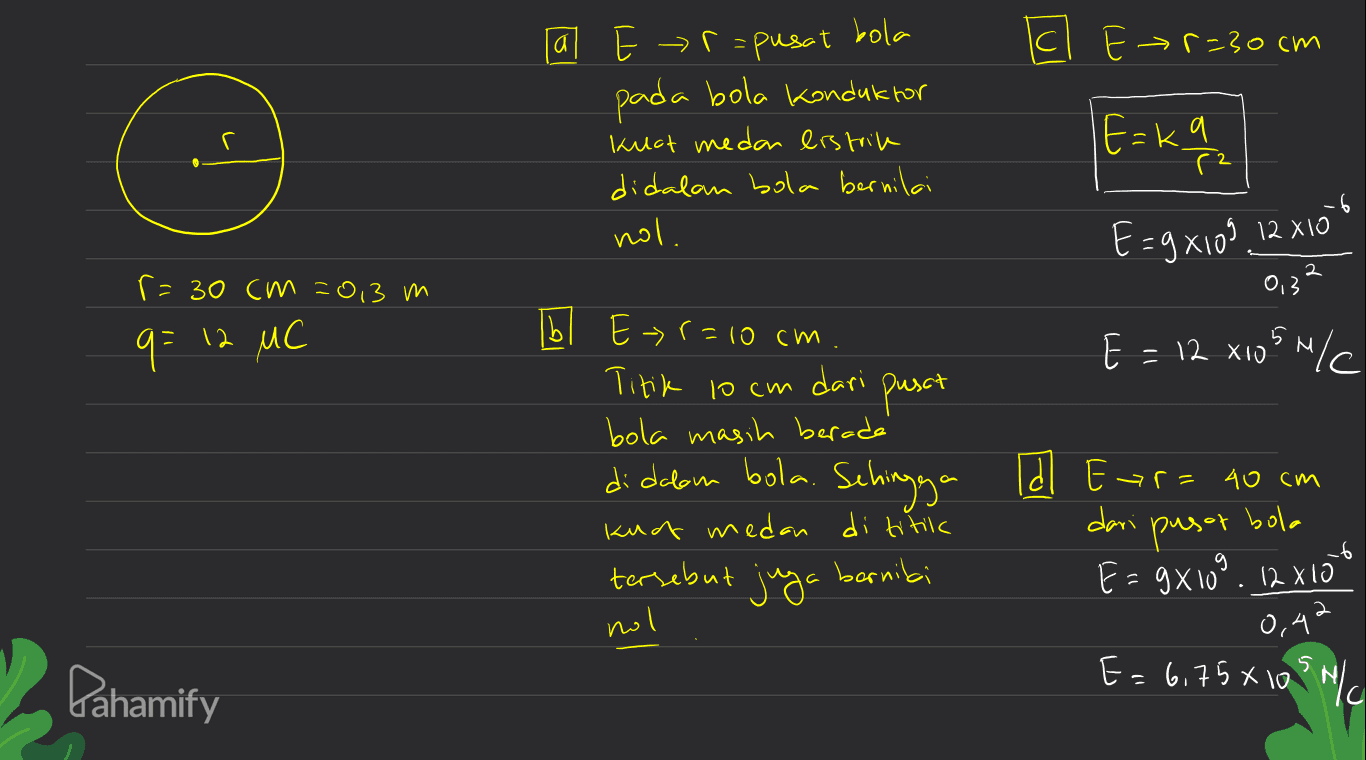 r
r = 30 cm = 0,3 m
q = 12 μC
a E → r = pusat bola
pada bola konduktor
kuat medan listrik
didalam bola bernilai
nol.
b E → r = 10 cm.
Titik 10 cm dari pusat
bola masih berada
di dalam bola. Sehingga
kuat medan di titik
tersebut juga bernilai
nol.
c E → r = 30 cm
E = k q/r²
E = 9 x 10⁹ . 12 x 10⁻⁶/0,3²
E = 12 x 10⁵ N/C
d E → r = 40 cm
dari pusat bola
E = 9 x 10⁹ . 12 x 10⁻⁶/0,4²
E = 6,75 x 10⁵ N/C
Pahamify